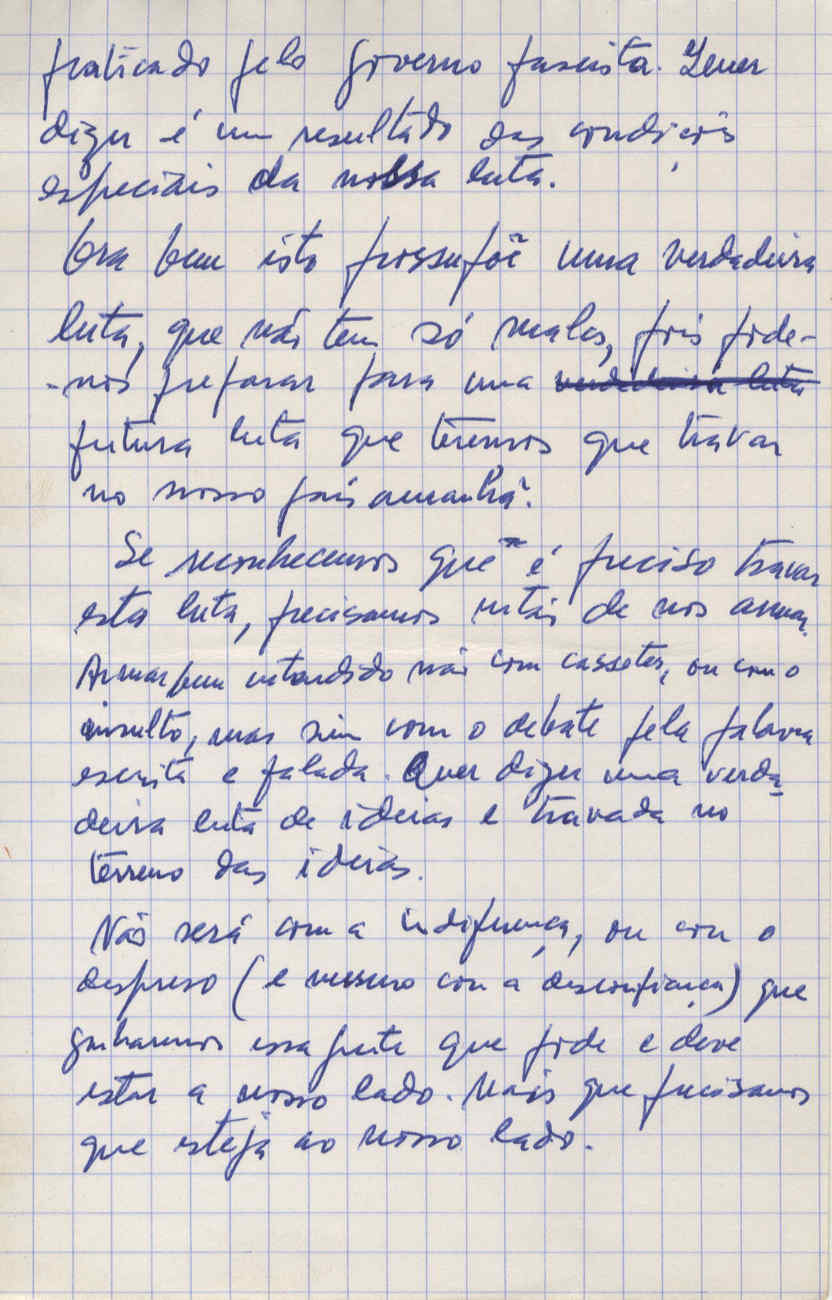 praticado pelo governo fascista. Quer
dizer é um resultado das condições
especiais da nossa luta.
Ora bem isto pressupõe uma verdadeira
luta, que não tem só males, pois pode-
-nos preparar para uma verdadeira luta
futura luta que teremos que travar
no nosso país amanhã.
Se reconhecemos que é preciso travar
esta luta, precisamos então de nos armar.
Armar bem entendido não com cassetes, ou com o
insulto, mas sim com o debate pela palavra
escrita e falada. Quer dizer uma verda-
deira luta de ideias e travada no
terreno das ideias.
Não será com a indiferença, ou com o
despreso (e mesmo com a desconfiança) que
ganharemos essa gente que pode e deve
estar a nosso lado. Mais que precisamos
que esteja ao nosso lado.